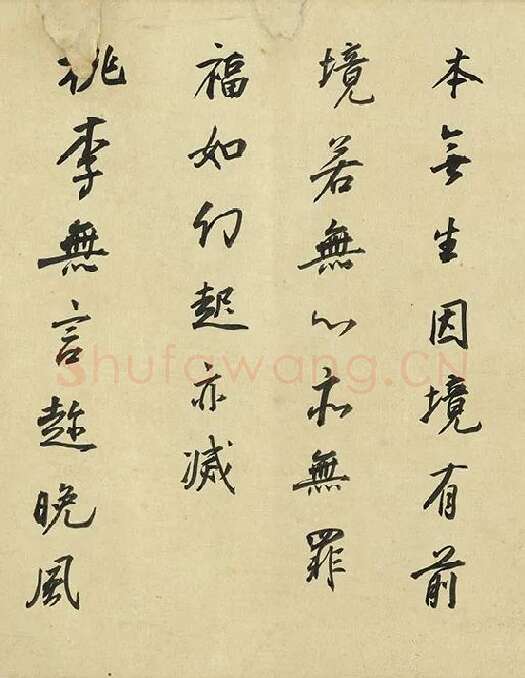 本無生因境有前
境若無心亦無罪
福如幻起亦滅
桃李無言趁晚風
shufawang.CN